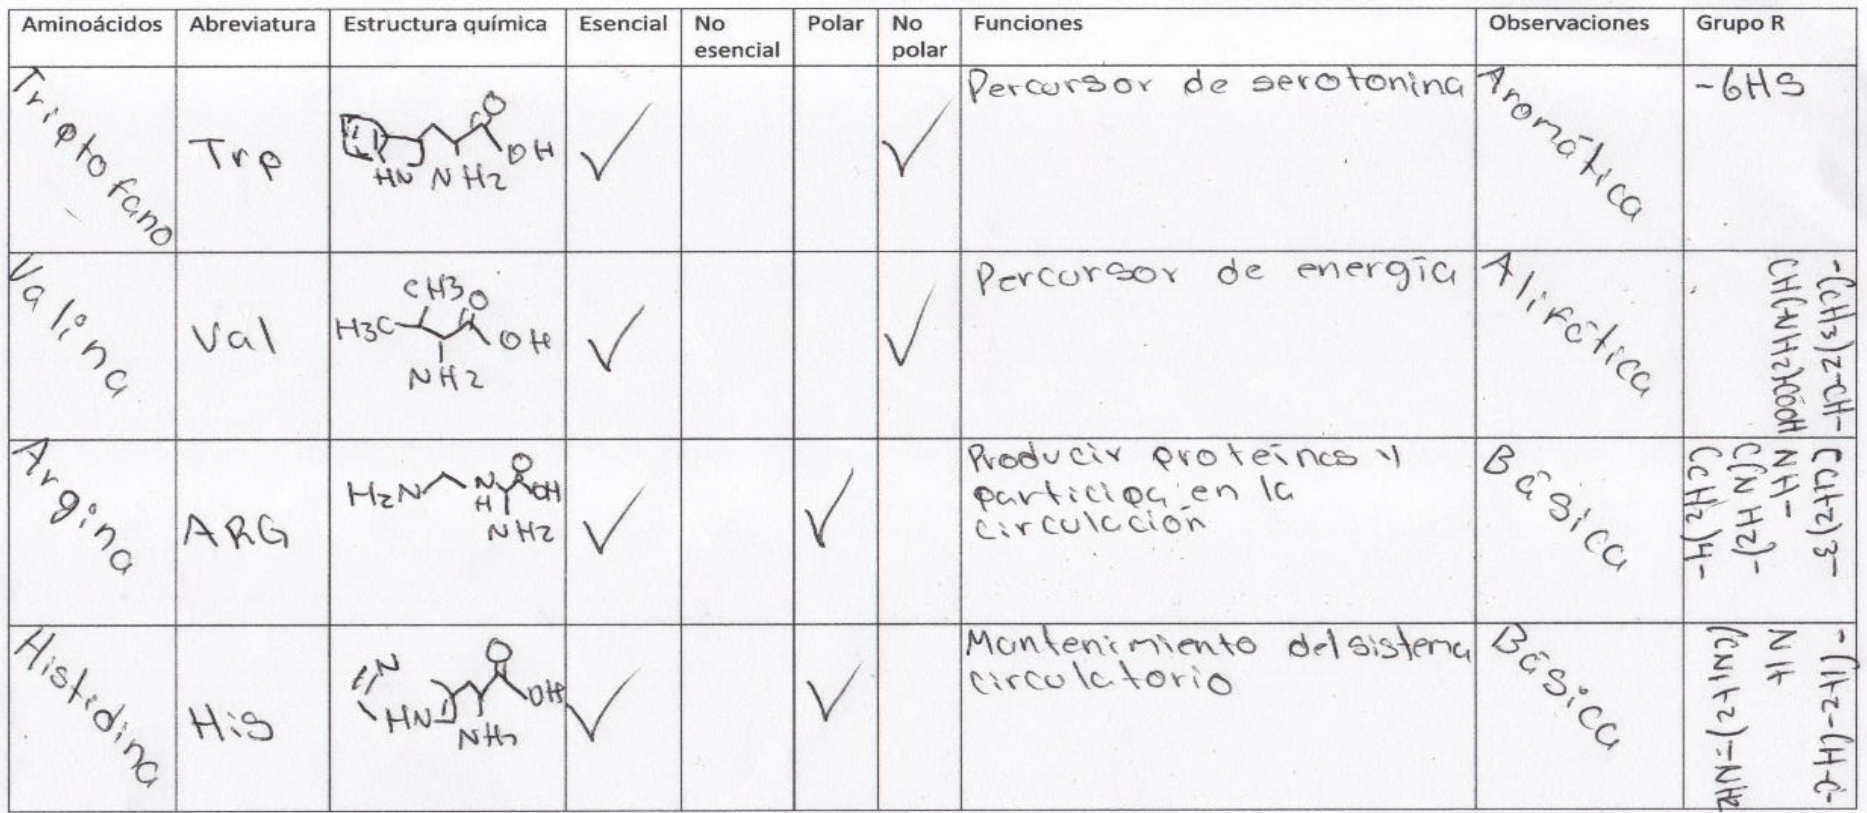 Aminoácidos Abreviatura Estructura química Esencial No esencial Polar No polar Funciones Observaciones Grupo R
Triptofano Trp O OH HN NH2 ✓ ✓ Percursor de serotonina Aromática -6HS
Valina Val CH3 O H3C OH NH2 ✓ ✓ Percursor de energía Alifática -(CH3)2-CH-
CH(NH2)COOH
Argina ARG H2N N H O OH NH2 ✓ ✓ Producir proteínas y
participa en la
circulación
Básica (CH2)3-
NH-
C(NH2)-
(CH2)4-
Histidina His N HN O OH NH2 ✓ ✓ Mantenimiento del sistema
circulatorio
Básica
NH